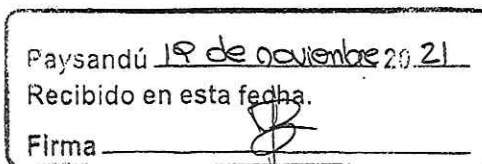 Paysandú 19 de noviembre 20 21
Recibido en esta fecha.
Firma